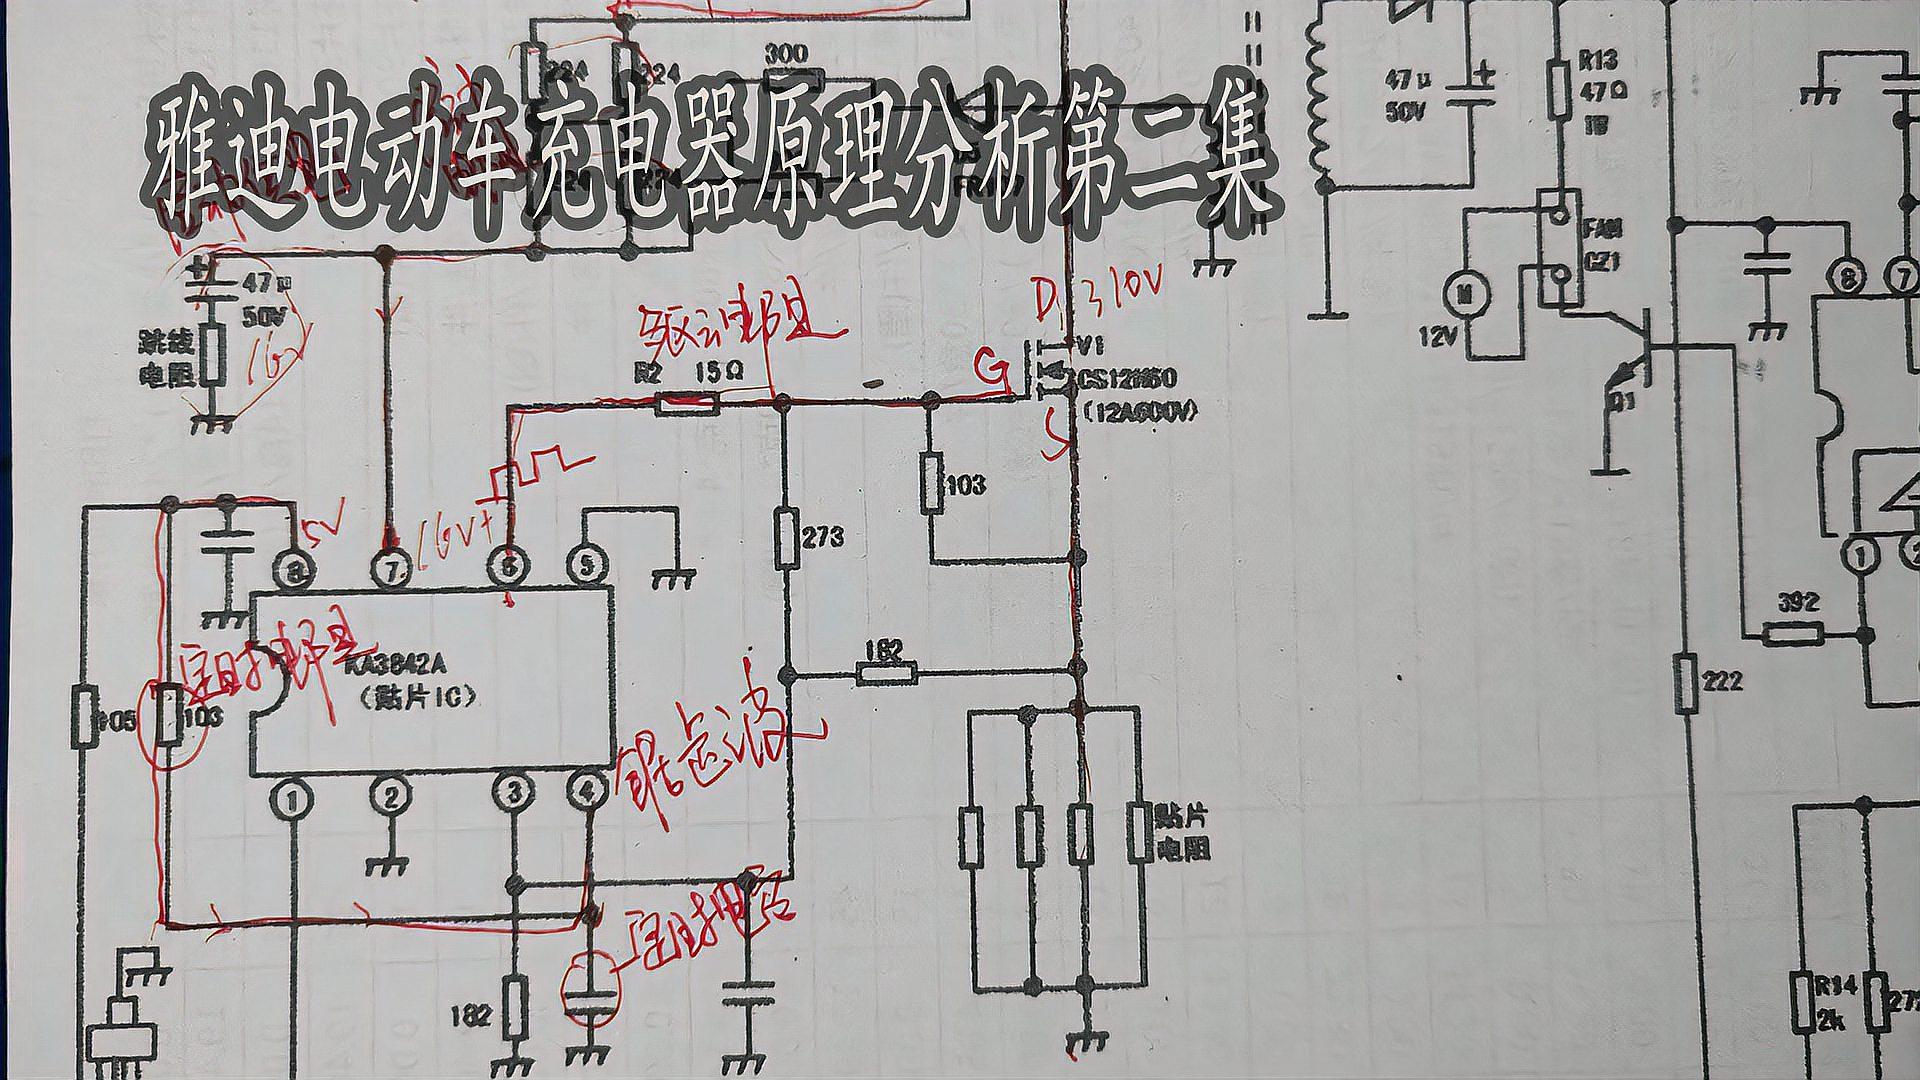 雅迪电动车充电器原理分析第二集
224
224
300
47μ
50V
R13
47Ω
1W
FAM
CZ1
M
12V
Q1
8
7
47μ
50V
跳线
电阻
16V
驱动电阻
R2 15Ω
D 310V
G
S
V1
CS12N60
(12A600V)
103
273
5V
16V+
8
7
6
5
定时电阻
KA3842A
(贴片IC)
105
103
182
锯齿波
1
2
3
4
定时电容
182
贴片
电阻
392
222
1
2
R14
2k